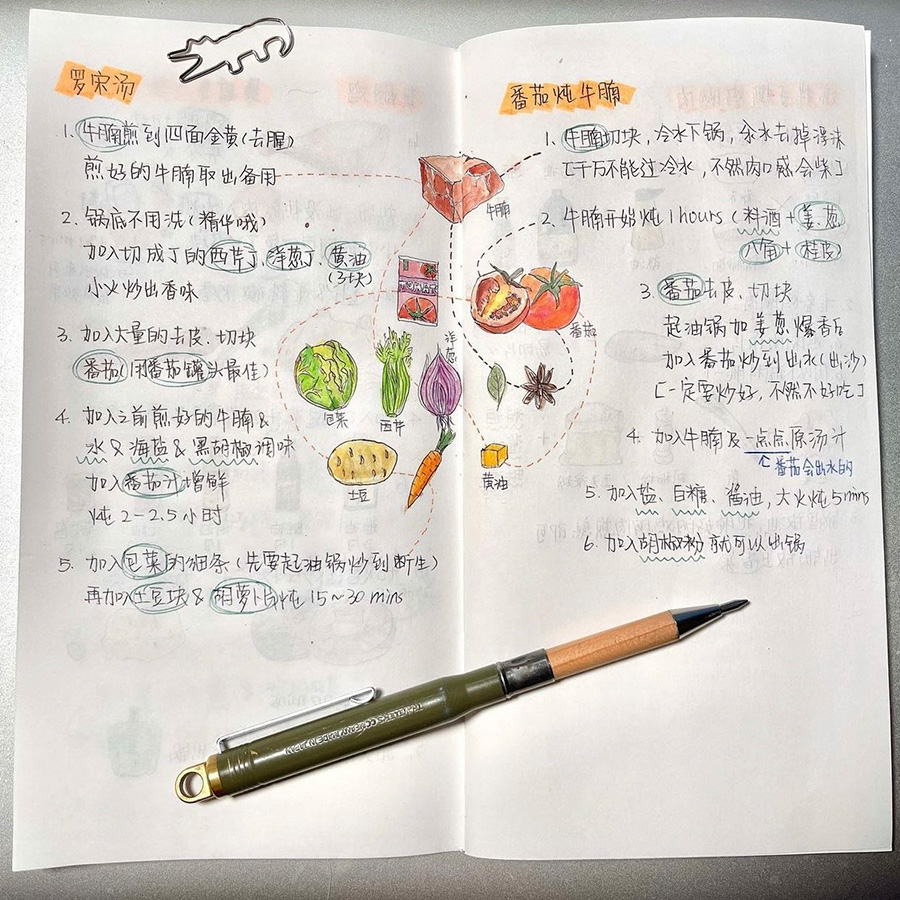 罗宋汤
1. 牛腩煎到四面金黄(去腥)
煎好的牛腩取出备用
2. 锅底不用洗(精华哦)
加入切成丁的西芹丁、洋葱丁、黄油
(3块)
小火炒出香味
3. 加入大量的去皮、切块
番茄(用番茄罐头最佳)
4. 加入之前煎好的牛腩&
水&海盐&黑胡椒调味
加入番茄汁增鲜
炖2-2.5小时
5. 加入包菜的细条(先要起油锅炒到断生)
再加入土豆块&胡萝卜块炖15~30 mins
牛腩
TOMATO
番茄
洋葱
包菜
西芹
土豆
黄油
番茄炖牛腩
1. 牛腩切块,冷水下锅,汆水去掉浮沫
[千万不能过冷水,不然肉口感会柴]
2. 牛腩开始炖1hours(料酒+姜、葱
八角+桂皮)
3. 番茄去皮、切块
起油锅加姜葱爆香后
加入番茄炒到出水(出沙)
[一定要炒好,不然不好吃]
4. 加入牛腩及一点点原汤汁
番茄会出水的
5. 加入盐、白糖、酱油,大火炖5mins
6. 加入胡椒粉就可以出锅